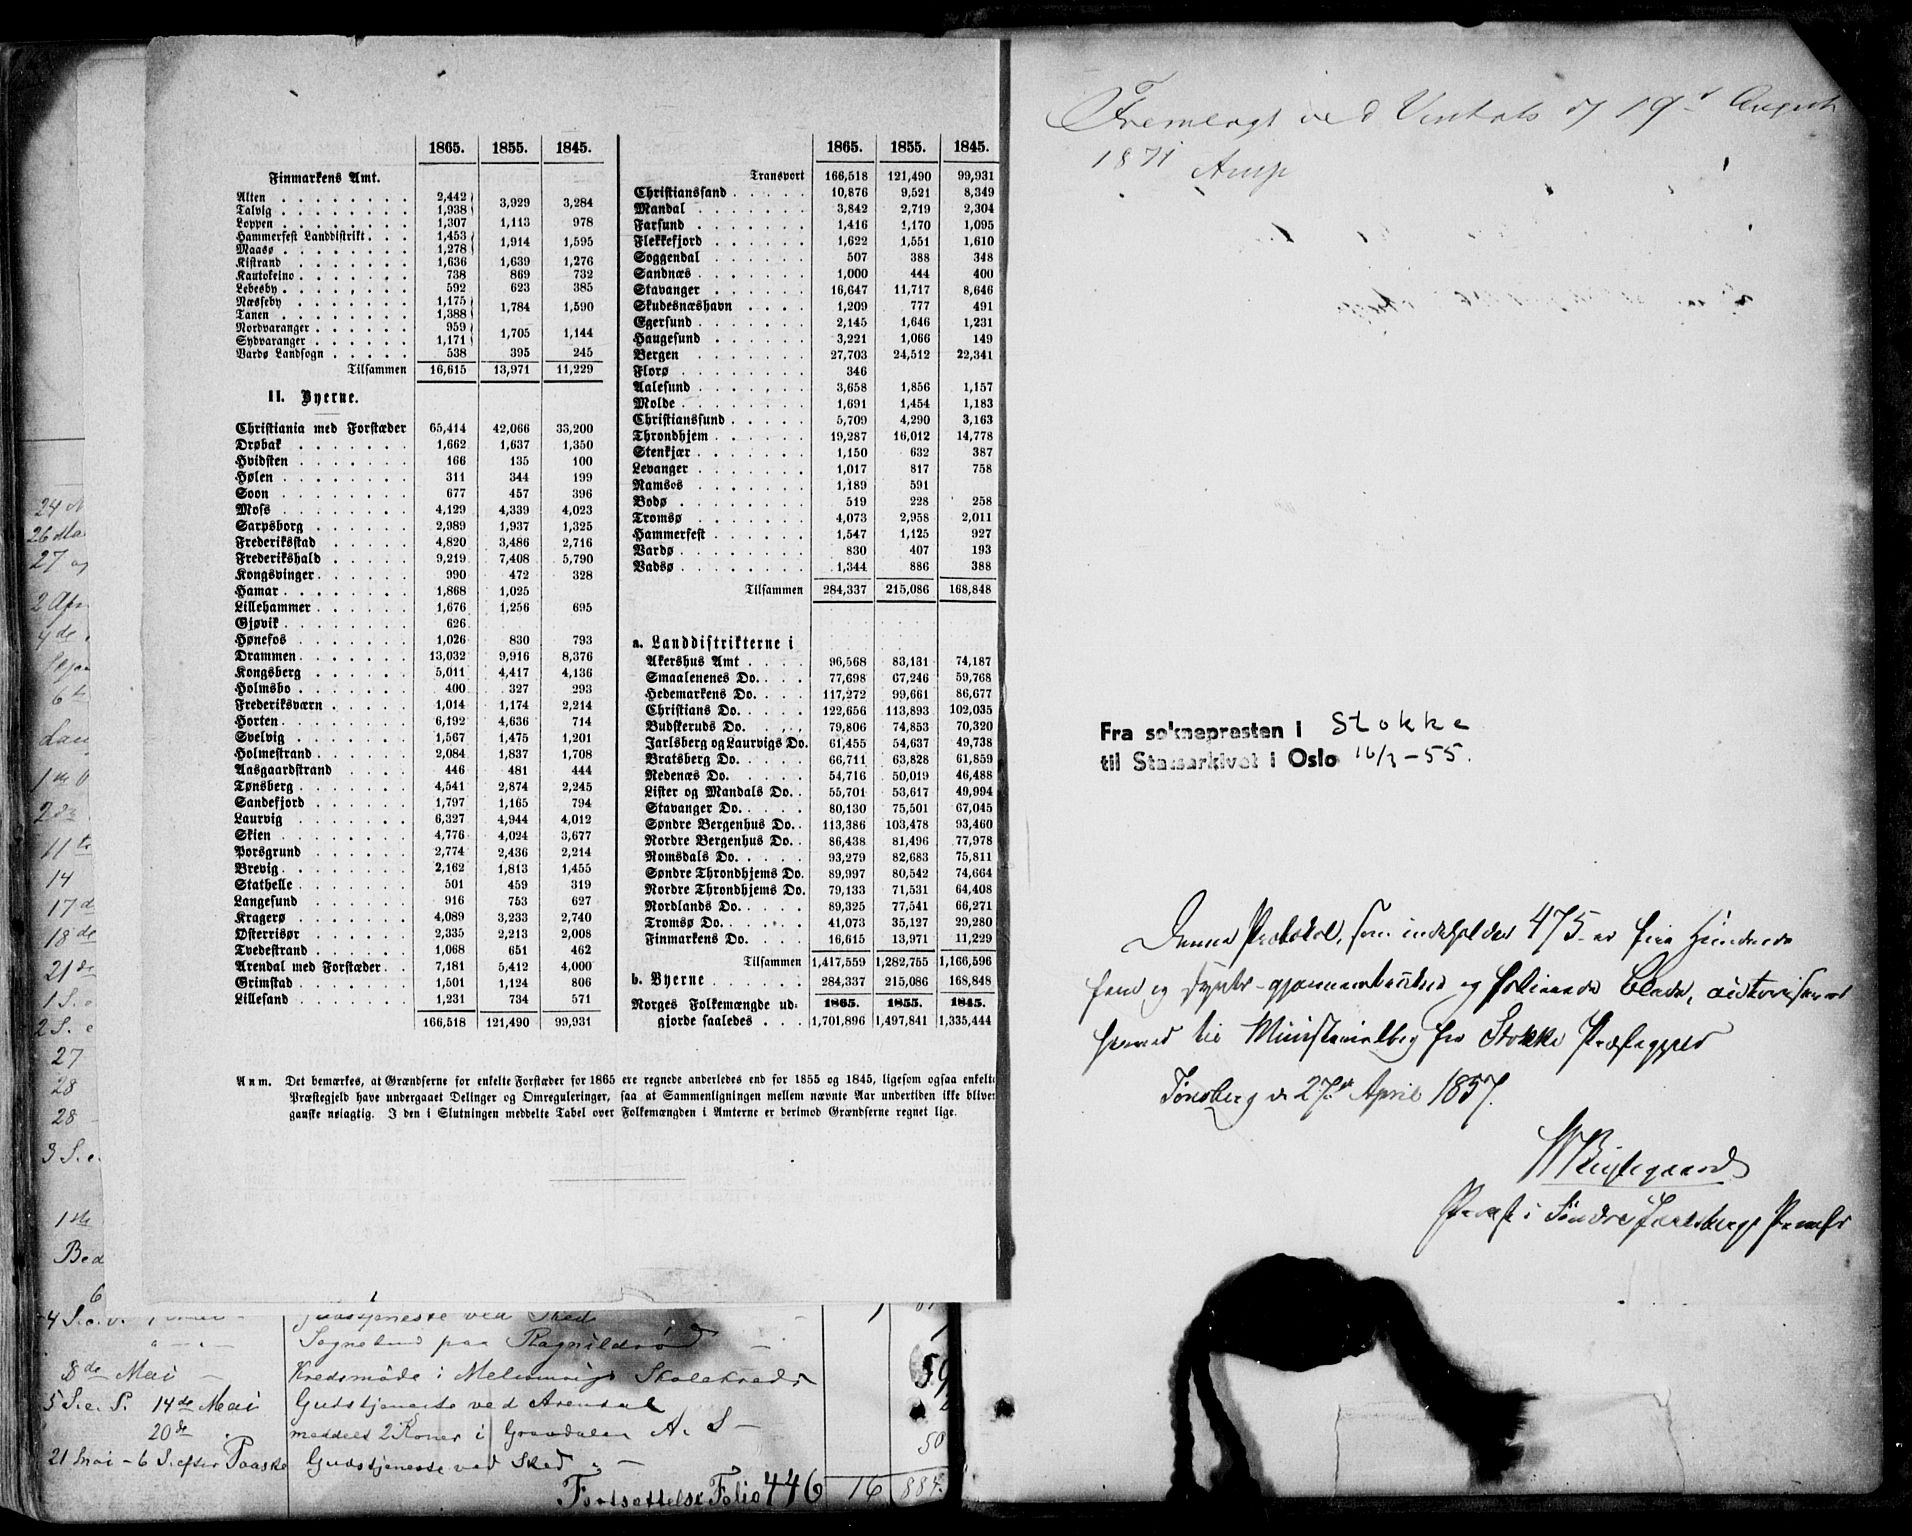 1865. 1855. 1845.
Finmarkens Amt.
Alten . . . 2,442 } 3,929 3,284
Talvig . . . 1,938 }
Loppen . . . 1,307 1,113 978
Hammerfest Landdistrikt . . . 1,453 } 1,914 1,595
Maasø . . . 1,278 }
Kistrand . . . 1,636 1,639 1,276
Kautokeino . . . 738 869 732
Lebesby . . . 592 623 385
Næsseby . . . 1,175 } 1,784 1,590
Tanen . . . 1,388 }
Nordvaranger . . . 959 } 1,705 1,144
Sydvaranger . . . 1,171 }
Vardø Landsogn . . . 538 395 245
Tilsammen 16,615 13,971 11,229
II. Byerne.
Christiania med Forstæder 65,414 42,066 33,200
Drøbak . . . 1,662 1,637 1,350
Hvidsten . . . 166 135 100
Hølen . . . 311 344 199
Soon . . . 677 457 396
Moss . . . 4,129 4,339 4,023
Sarpsborg . . . 2,989 1,937 1,325
Frederiksstad . . . 4,820 3,486 2,716
Frederikshald . . . 9,219 7,408 5,790
Kongsvinger . . . 990 472 328
Hamar . . . 1,868 1,025
Lillehammer . . . 1,676 1,256 695
Gjøvik . . . 626
Hønefos . . . 1,026 830 793
Drammen . . . 13,032 9,916 8,376
Kongsberg . . . 5,011 4,417 4,136
Holmsbo . . . 400 327 293
Frederiksværn . . . 1,014 1,174 2,214
Horten . . . 6,192 4,636 714
Svelvig . . . 1,567 1,475 1,201
Holmestrand . . . 2,084 1,837 1,708
Aasgaardstrand . . . 446 481 444
Tønsberg . . . 4,541 2,874 2,245
Sandefjord . . . 1,797 1,165 794
Laurvig . . . 6,327 4,944 4,012
Skien . . . 4,776 4,024 3,677
Porsgrund . . . 2,774 2,436 2,214
Brevig . . . 2,162 1,813 1,455
Stathelle . . . 501 459 319
Langesund . . . 916 753 627
Kragerø . . . 4,089 3,233 2,740
Østerrisør . . . 2,335 2,213 2,008
Tvedestrand . . . 1,068 651 462
Arendal med Forstæder . . 7,181 5,412 4,000
Grimstad . . . 1,501 1,124 806
Lillesand . . . 1,231 734 571
166,518 121,490 99,931
1865. 1855. 1845.
Transport 166,518 121,490 99,931
Christianssand . . . 10,876 9,521 8,349
Mandal . . . 3,842 2,719 2,304
Farsund . . . 1,416 1,170 1,095
Flekkefjord . . . 1,622 1,551 1,610
Soggendal . . . 507 388 348
Sandnæs . . . 1,000 444 400
Stavanger . . . 16,647 11,717 8,646
Skudesnæshavn . . . 1,209 777 491
Egersund . . . 2,145 1,646 1,231
Haugesund . . . 3,221 1,066 149
Bergen . . . 27,703 24,512 22,341
Florø . . . 346
Aalesund . . . 3,658 1,856 1,157
Molde . . . 1,691 1,454 1,183
Christianssund . . . 5,709 4,290 3,163
Throndhjem . . . 19,287 16,012 14,778
Stenkjær . . . 1,150 632 387
Levanger . . . 1,017 817 758
Namsos . . . 1,189 591
Bodø . . . 519 228 258
Tromsø . . . 4,073 2,958 2,011
Hammerfest . . . 1,547 1,125 927
Vardø . . . 830 407 193
Vadsø . . . 1,344 886 388
Tilsammen 284,337 215,086 168,848
a. Landdistrikterne i
Akershus Amt . . . 96,568 83,131 74,187
Smaalenenes Do. . . . 77,698 67,246 59,768
Hedemarkens Do. . . . 117,272 99,661 86,677
Christians Do. . . . 122,656 113,893 102,035
Budskeruds Do. . . . 79,806 74,853 70,320
Jarlsberg og Laurvigs Do. 61,455 54,637 49,738
Bratsberg Do. . . . 66,711 63,828 61,859
Nedenæs Do. . . . 54,716 50,019 46,488
Lister og Mandals Do. . 55,701 53,617 49,994
Stavanger Do. . . . 80,130 75,501 67,045
Søndre Bergenhus Do. . 113,386 103,478 93,460
Nordre Bergenhus Do. . 86,438 81,496 77,978
Romsdals Do. . . . 93,279 82,683 75,811
Søndre Throndhjems Do. 89,997 80,542 74,664
Nordre Throndhjems Do. 79,133 71,531 64,408
Nordlands Do. . . . 89,325 77,541 66,271
Tromsø Do. . . . 41,073 35,127 29,280
Finmarkens Do. . . . 16,615 13,971 11,229
Tilsammen 1,417,559 1,282,755 1,166,596
b. Byerne . . . 284,337 215,086 168,848
Norges Folkemængde ud- 1865. 1855. 1845.
gjorde saaledes . . . 1,701,896 1,497,841 1,335,444
Anm. Det bemærkes, at Grændserne for enkelte Forstæder for 1865 ere regnede anderledes end for 1855 og 1845, ligesom ogsaa enkelte
Præstegjeld have undergaaet Delinger og Omreguleringer, saa at Sammenligningen mellem nævnte Aar undertiden ikke bliver
ganske nøiagtig. I den i Slutningen meddelte Tabel over Folkemængden i Amterne er derimod Grændserne regnet lige.
24
26 Ma
27
2 Apr
6te
11te
14
17de
18de
21de
1 S.
2 S. e
27
28
28
3 S. e.
1ste
Bed
6
4 S. e. Gudstjeneste ved Sked
Sognebud paa Ragnildrø
8de Mai Kredsmøde i Melsomvigs Skolekreds
5 S. e. P. 14de Mai Gudstjeneste ved Arendal
20de meddelt 2 Koner i Grevdalen A. S
21 Mai - 6 S. efter Paaske Gudstjeneste ved Sked
Fortsættelse Folio 446 16 884
Fremlagt ved Visitats d 19d August
1871 Arup
Fra sokneprestem i Stokke
til Statsarkivet i Oslo 16/3-55.
Denne Protokol, som indeholder 475 er fire Hundrede
fem og syvti gjennemtrukne og folierede Blade, autoriseres
herved til Ministerialbog for Stokke Præstegjeld
Tønsberg d. 27de April 1857.
Provst i Søndre Jarlsbergs Provsti